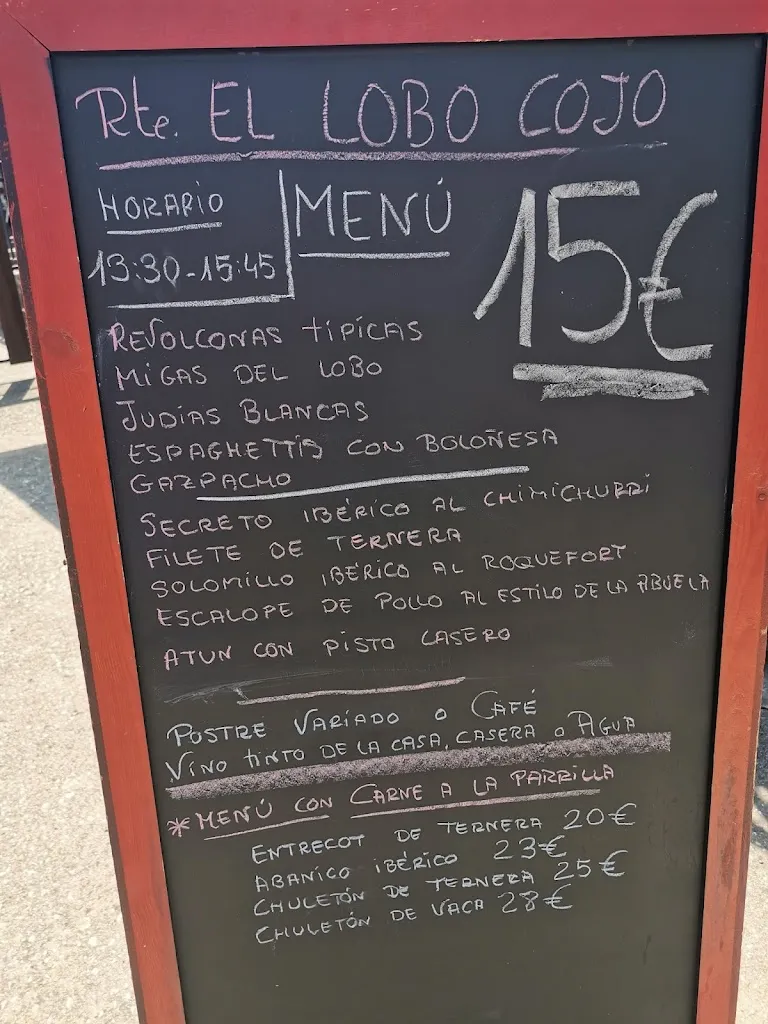 Rte. EL LOBO COJO
HORARIO
13:30-15:45
MENÚ
15€
REVOLCONAS TÍPICAS
MIGAS DEL LOBO
JUDÍAS BLANCAS
ESPAGHETTIS CON BOLOÑESA
GAZPACHO
SECRETO IBÉRICO AL CHIMICHURRI
FILETE DE TERNERA
SOLOMILLO IBÉRICO AL ROQUEFORT
ESCALOPE DE POLLO AL ESTILO DE LA ABUELA
ATUN CON PISTO CASERO
POSTRE VARIADO O CAFÉ
VINO TINTO DE LA CASA, CASERA O AGUA
*MENÚ CON CARNE A LA PARRILLA
ENTRECOT DE TERNERA 20€
ABANICO IBÉRICO 23€
CHULETÓN DE TERNERA 25€
CHULETÓN DE VACA 28€